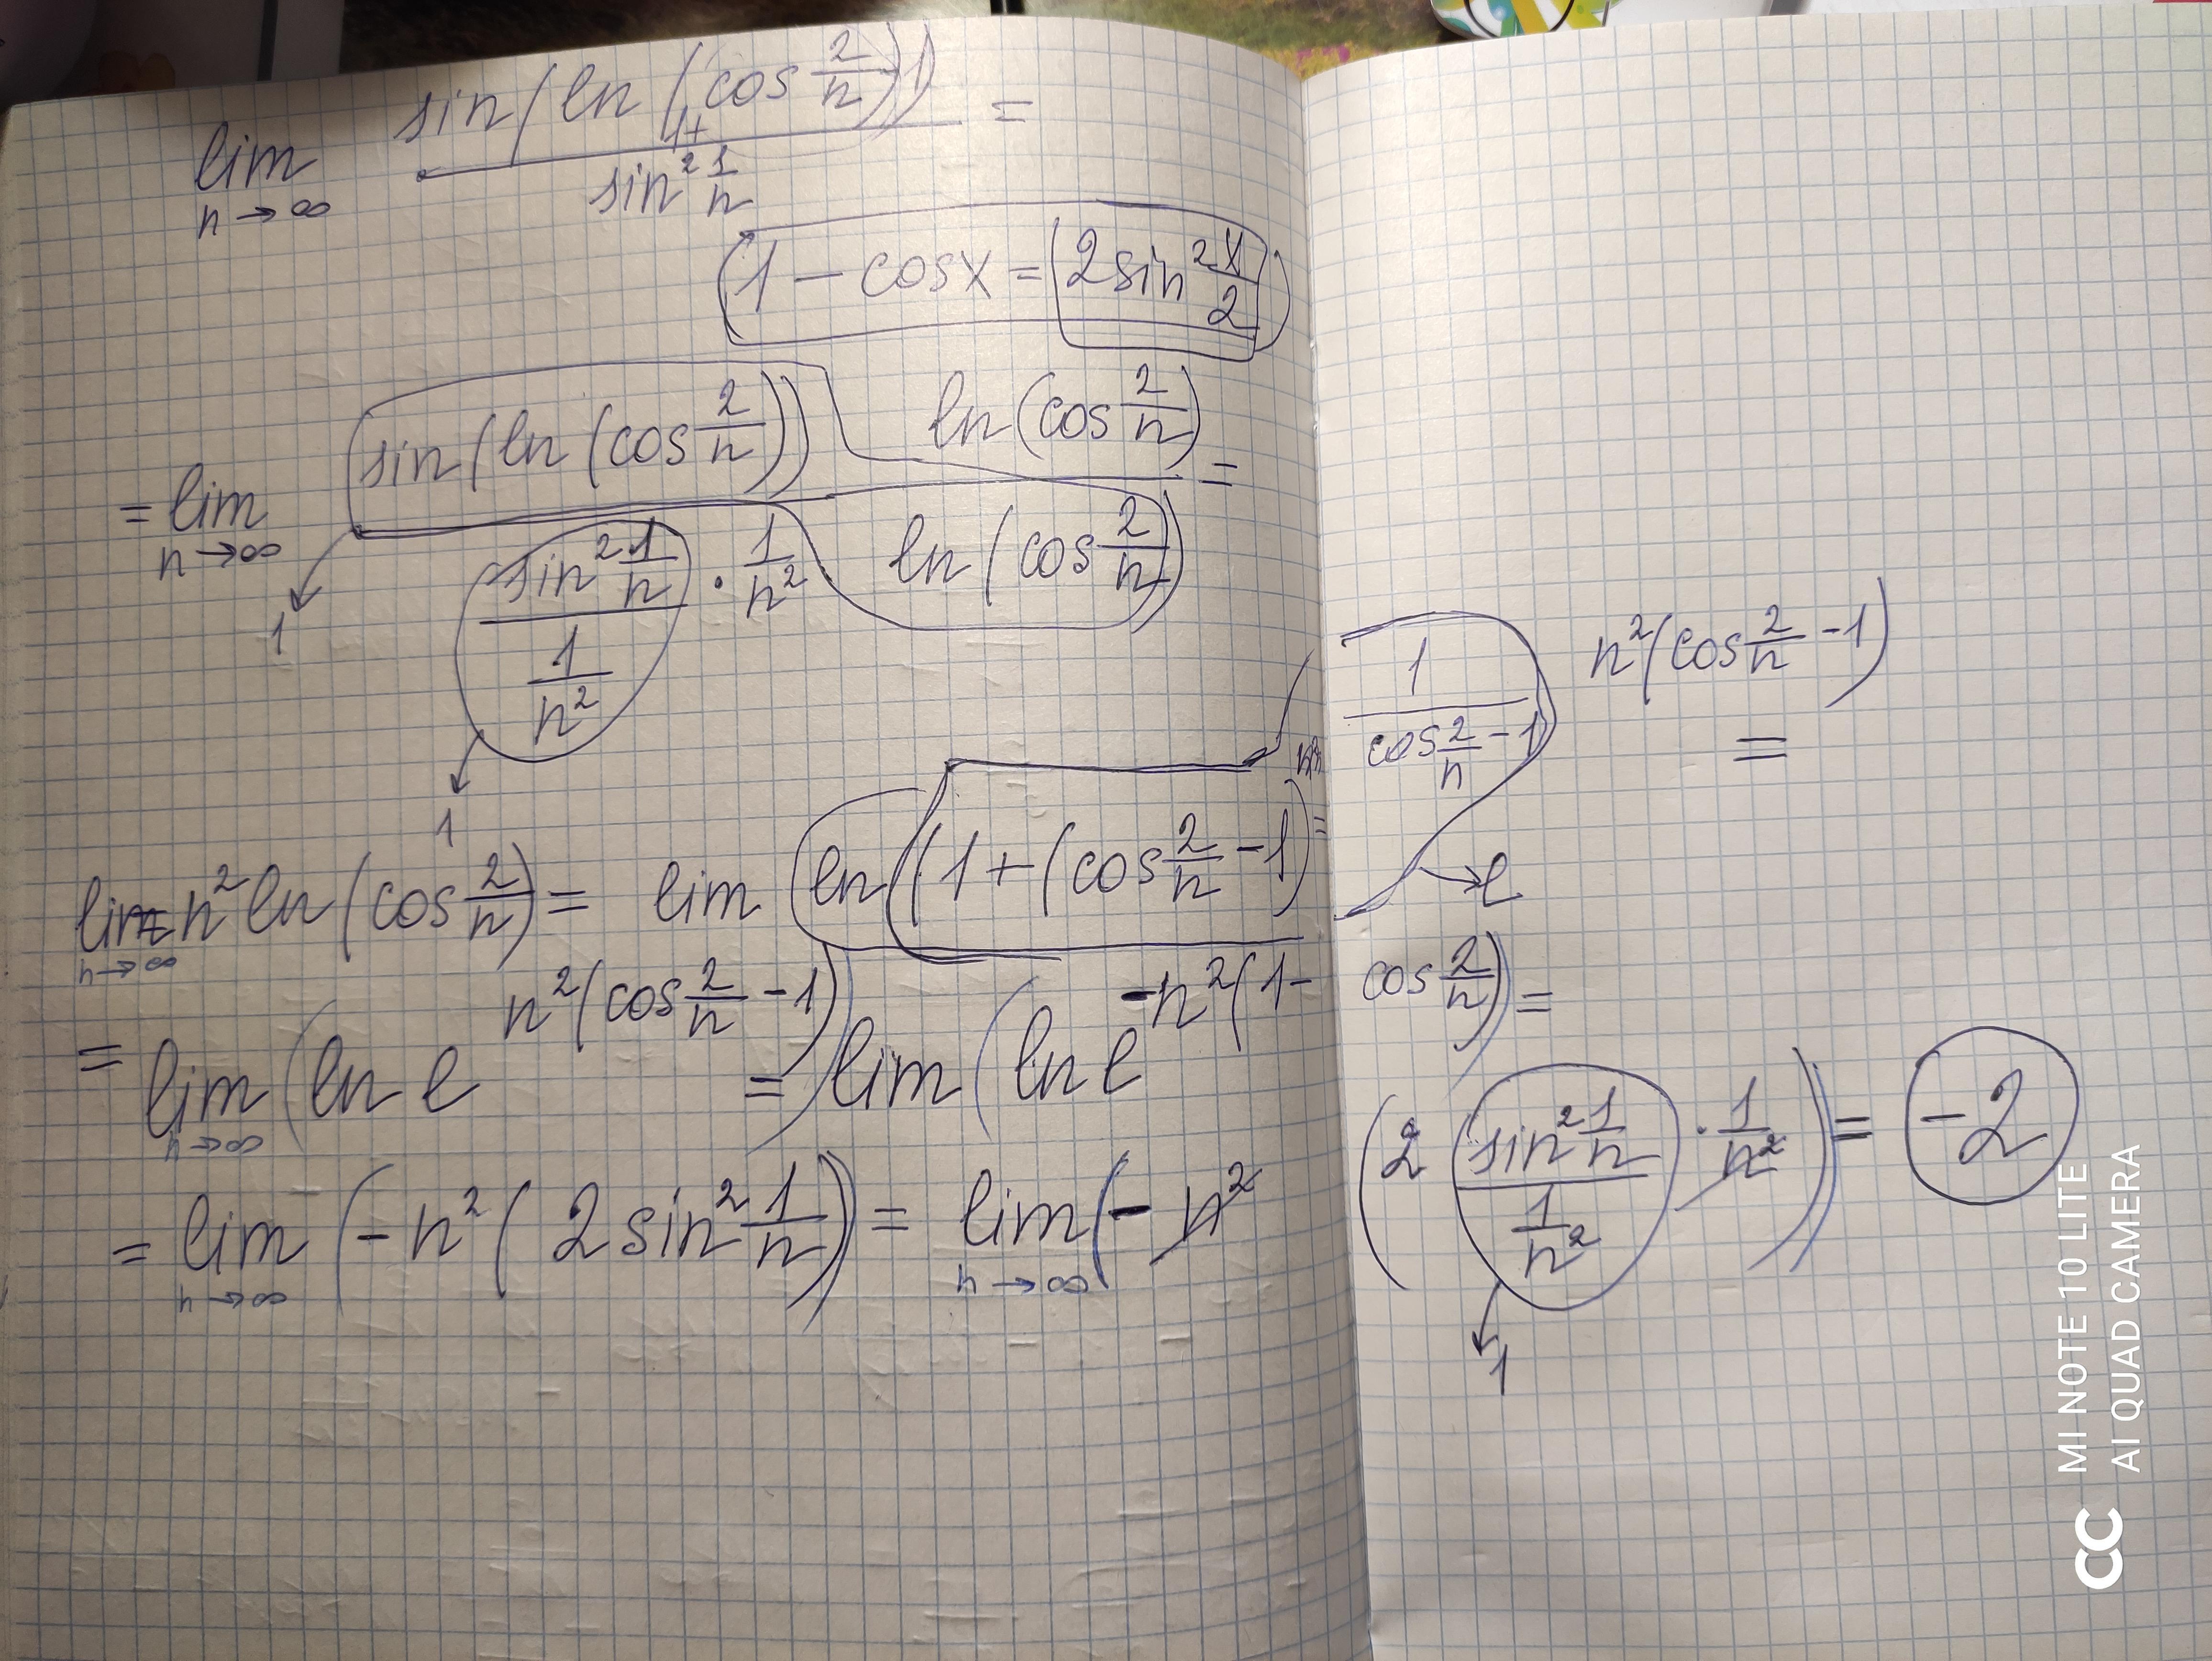 lim n→∞ sin(ln(cos 2/n)) / sin² 1/n =
(1 − cosx = 2sin² x/2)
= lim n→∞ sin(ln(cos 2/n)) ln(cos 2/n) / (sin² 1/n / 1/n² · 1/n² ln(cos 2/n)) =
1
1
lim n→∞ n² ln(cos 2/n) = lim (ln((1+(cos 2/n −1) 1/(cos 2/n −1) n²(cos 2/n −1) =
→ e
= lim n→∞ (ln e n²(cos 2/n −1)) = lim (ln e −n²(1− cos 2/n)) =
= lim n→∞ (−n²(2sin² 1/n)) = lim n→∞ (− n² (2 sin² 1/n / 1/n² · 1/n²)) = −2
1
MI NOTE 10 LITE
AI QUAD CAMERA